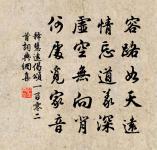 客路如天遠
情忘道義深
虛空無向背
何處覓家音
釋慧遠偈頌一百零二
首詞典網集